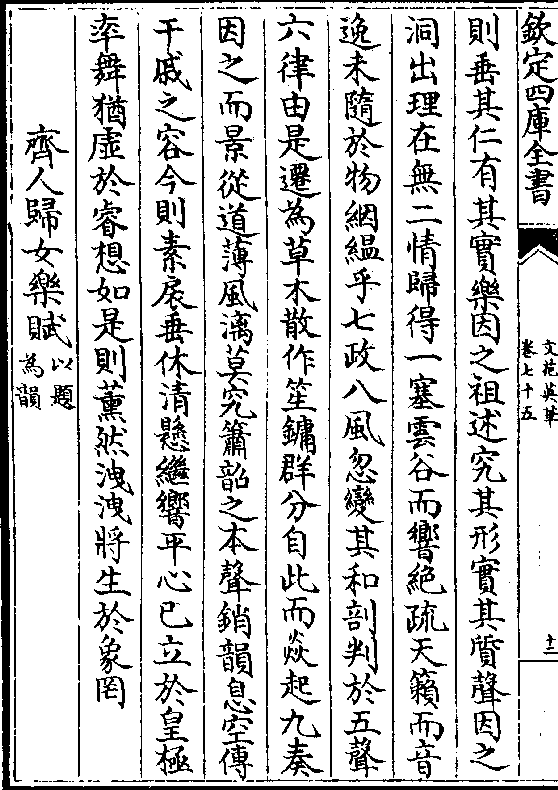 欽定四庫全書
文苑英華
卷七十五
十二
則垂其仁有其實樂因之祖述究其形實其質聲因之
洞出理在無二情歸得一塞雲谷而響絶疏天籟而音
逸未隨於物絪縕乎七政八風忽變其和剖判於五聲
六律由是遷為草木散作笙鏞群分自此而焱起九奏
因之而景從道薄風漓莫究簫韶之本聲銷韻息空傳
干戚之容今則素扆垂休清懸繼響平心已立於皇極
率舞猶虛於睿想如是則薰然洩洩將生於象罔
齊人歸女樂賦以題為韻